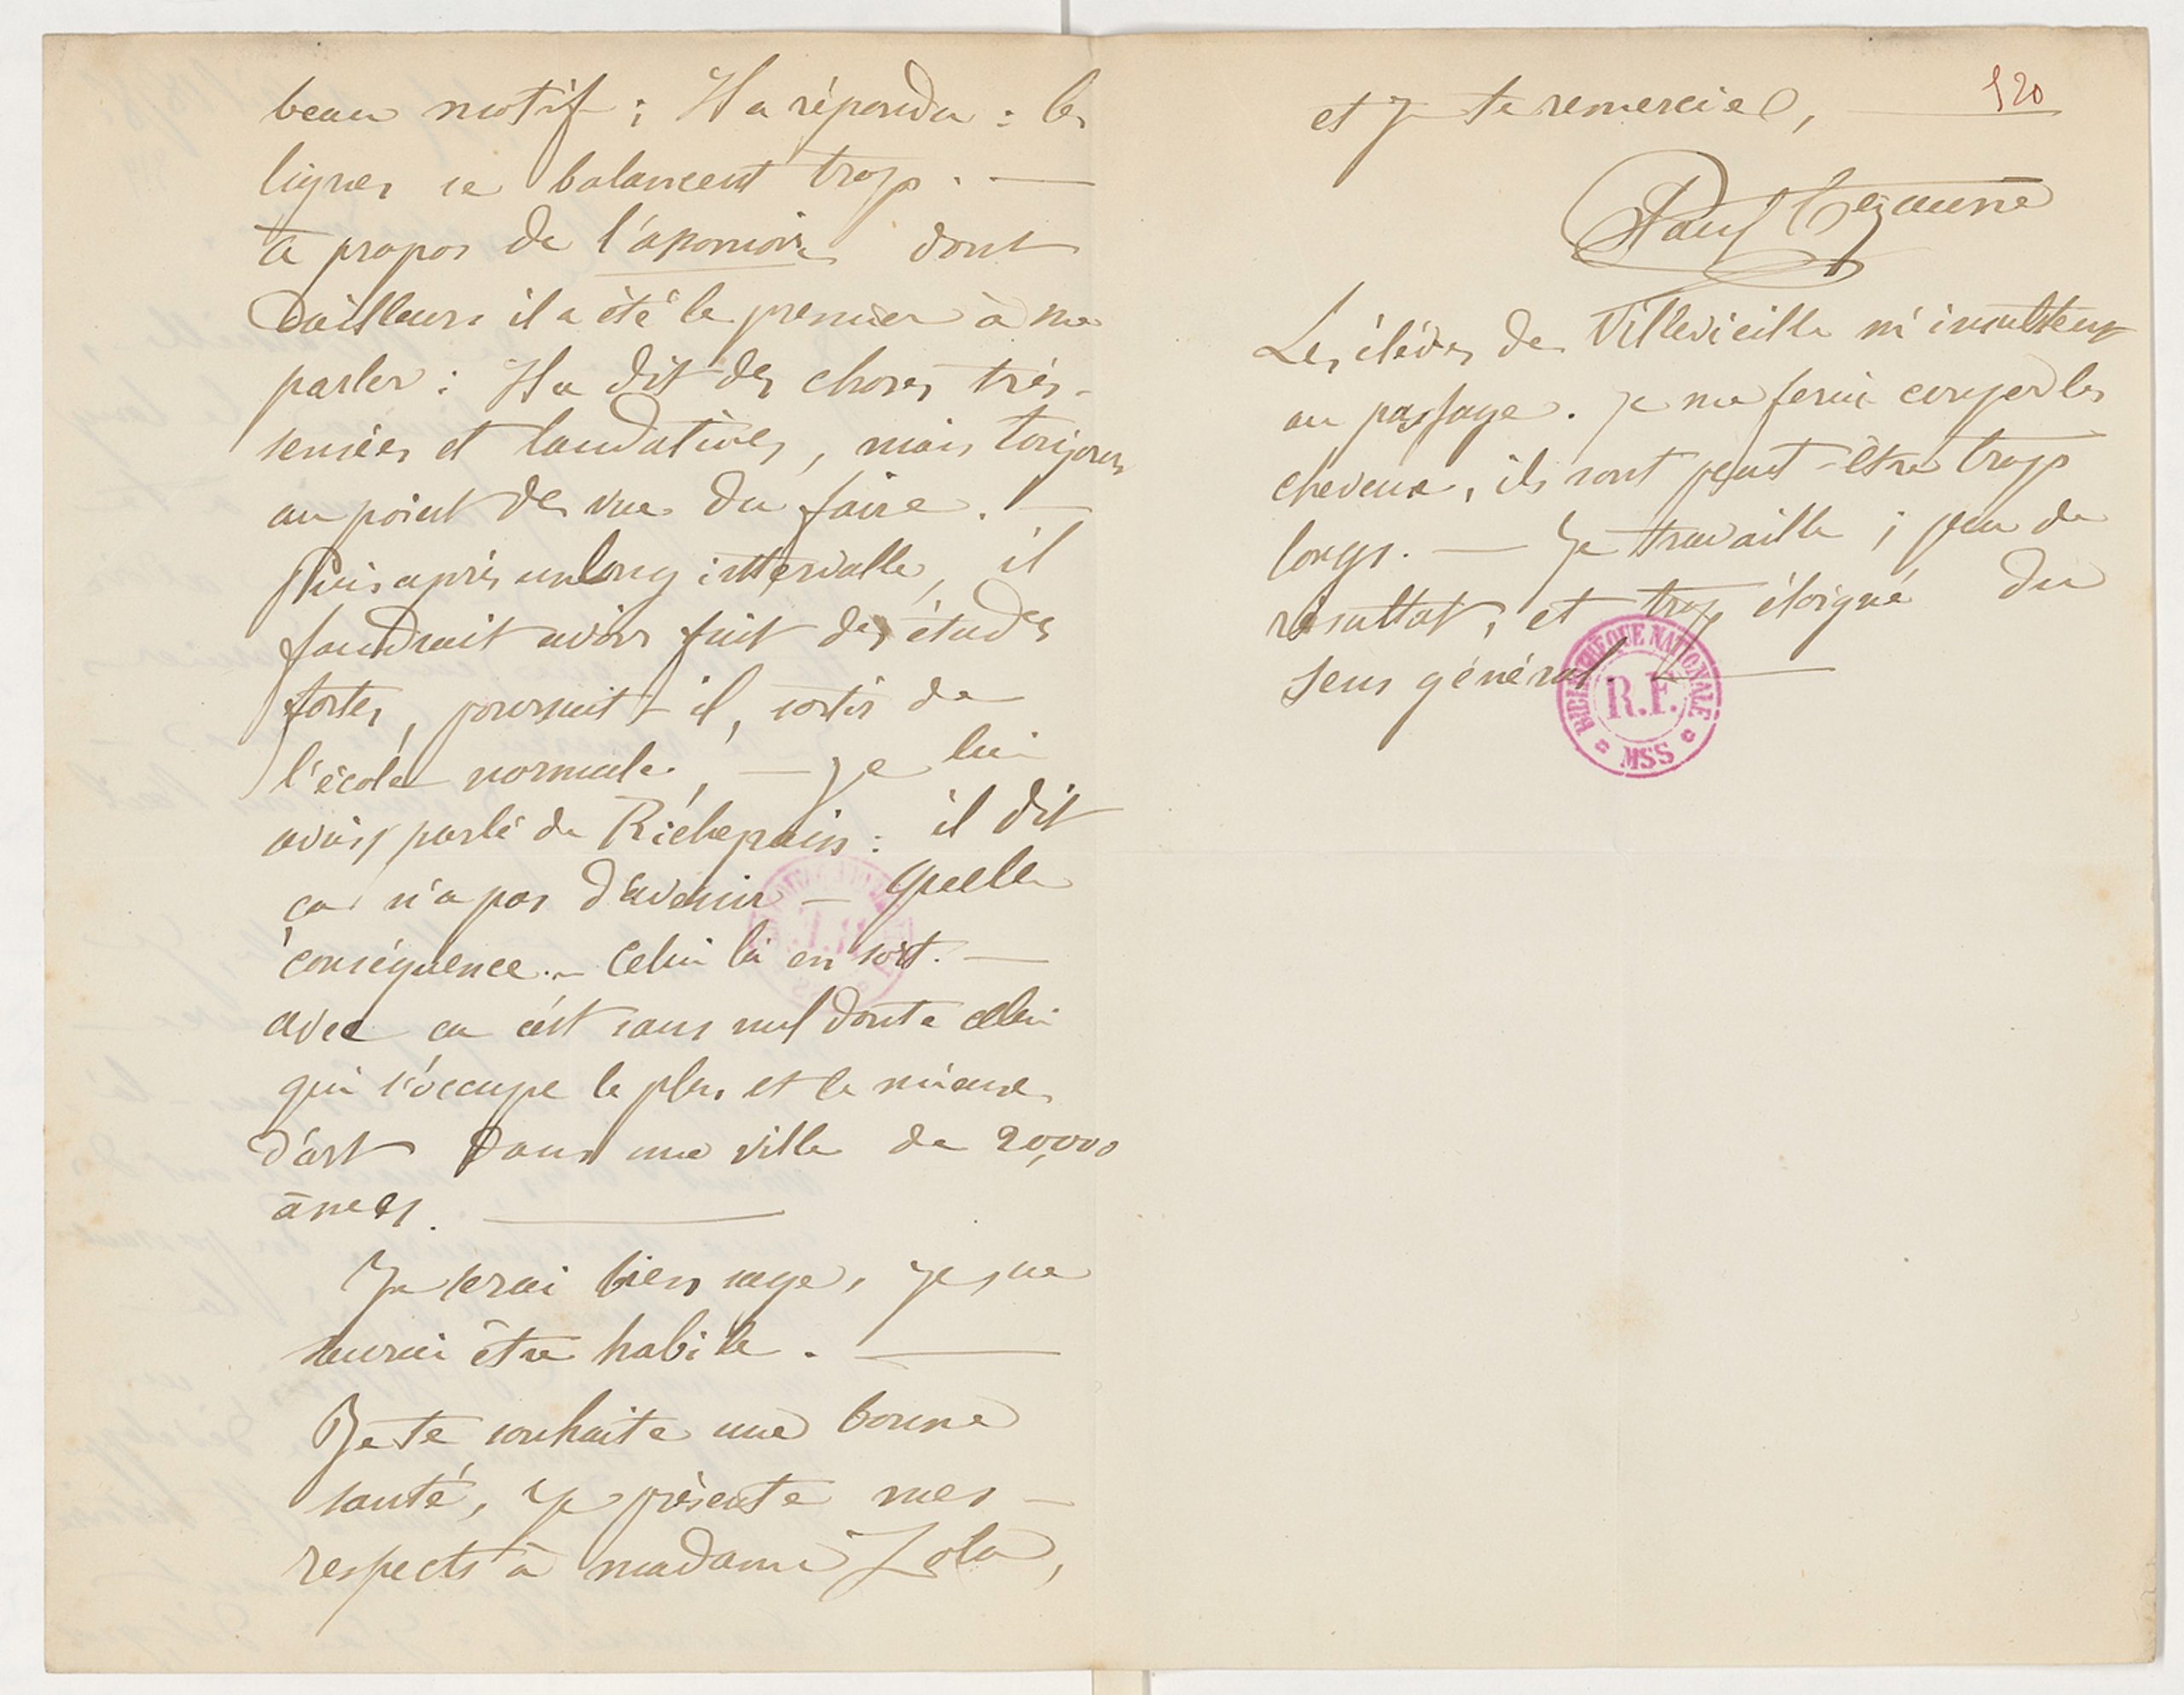 beau motif ; Il a répondu : les
lignes se balancent trop. —
à propos de l'assommoir dont
d'ailleurs il a été le premier à me
parler : Il a dit des choses très-
sensées et laudatives, mais toujours
au point de vue du faire. —
Puis après un long intervalle, il
faudrait avoir fait des études
fortes, poursuit-il, sortir de
l'école normale, — Je lui
avais parlé de Richepin : il dit
ça n'a pas d'avenir — quelle
conséquence. — Celui là en sort. —
avec ça c'est sans nul doute celui
qui s'occupe le plus et le mieux
d'art dans une ville de 20,000
ânes. —
Je serai bien sage, je ne
saurai être habile. —
Je te souhaite une bonne
santé, je présente mes —
respects à madame Zola,
120
et je te remercie,
Paul Cezanne
Les élèves de Villevieille m'insultent
au passage. Je me ferai couper les
cheveux, ils sont peut-être trop
longs. — Je travaille ; peu de
résultat, et trop éloigné du
sens général. —
BIBLIOTHÈQUE NATIONALE
R.F.
MSS